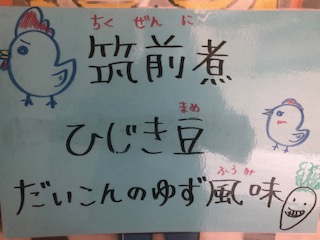 ちくぜんに
筑前煮
まめ
ひじき豆
ふうみ
だいこんのゆず風味